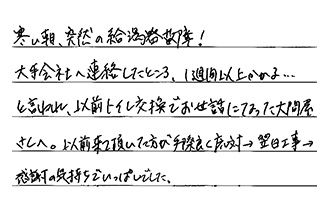 寒い朝、突然の給湯器故障！
大手会社へ連絡したところ、1週間以上かかる…
と言われ、以前トイレ交換でお世話になった大問屋
さんへ。以前来て頂いた方が手際良く応対→翌日工事→
感謝の気持ちでいっぱいでした、